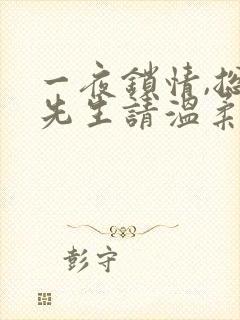 一夜鎖情,總
先生請溫柔
彭守